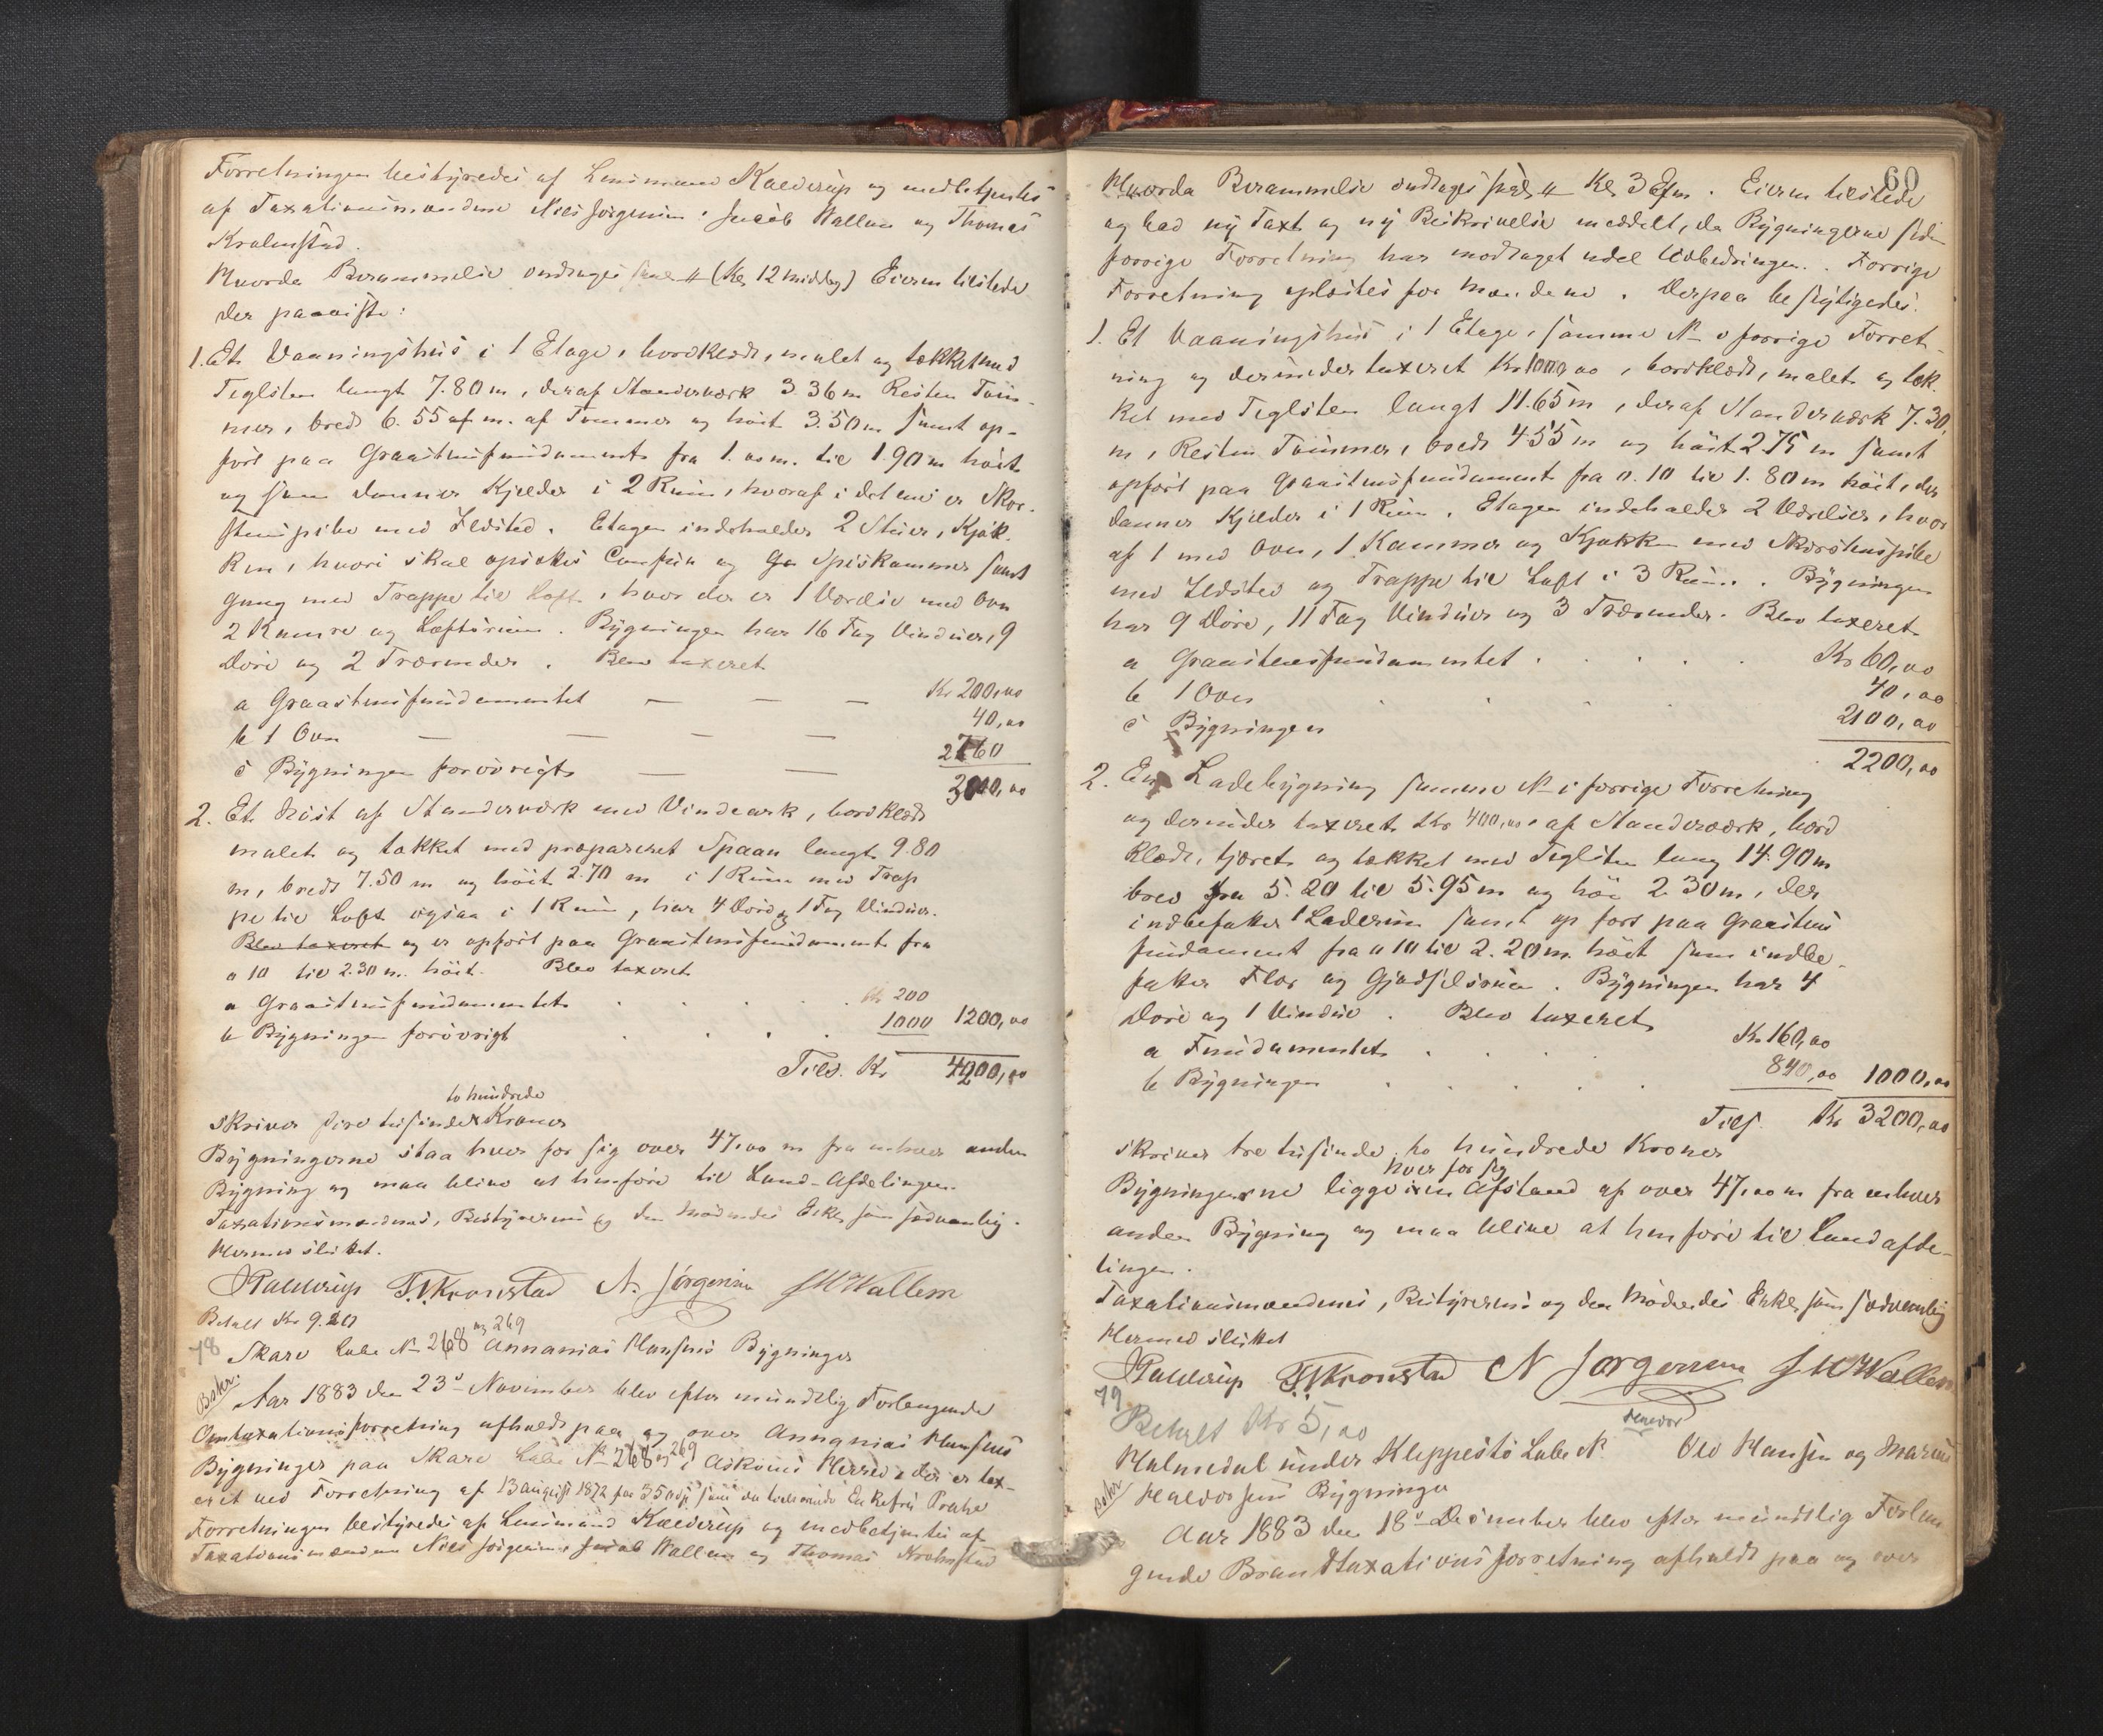 Forretningen bestyredes af Lensmand Kalderup og medbetjentes
af Taxationsmændene Niels Jørgensen, Jacob Wallem og Thomas
Krohnstad.
Hvorda Berammelse ondrages sml # (Kl 12 middag) Eieren tilstede
der paaviste:
1. Et Vaaningshus i 1 Etage, bordklædt, malet og tækket med
Teglsten langt 7.80 m, deraf Standerværk 3.36 m Resten Tøm-
mer, bredt 6.55 m. af Tømmer og høit 3.50 m samt op-
ført paa Graastensfundament fra 1.00 m. til 1.90 m høit
og som danner Kjelder i 2 Rum, hvoraf i det ene er Skor-
stenspibe med Ildsted. Etagen indeholder 2 Stuer, Kjøk-
ken, hvori skal opsættes Comfur og Spiskammer samt
Gang med Trappe til Loft, hvor der er 1 Værelse med Ovn
2 Kamre og Loftsrum. Bygningen har 16 Fag Vinduer, 9
Døre og 2 Trærender. Blev taxeret
a Graastensfundamentet — — — Kr 200,00
b 1 Ovn — — — — 40,00
c Bygningen forøvrigt — — 2760
3000,00
2. Et Nøst af Standerværk med Vindeark, bordklædt
malet og tækket med præpareret Spaan langt 9.80
m, bredt 7.50 m og høit 2.70 m i 1 Rum med Trap
pe til Loft ogsaa i 1 Rum, har 4 Døre og 1 Fag Vinduer.
Blev taxeret og er opført paa Graastensfundament fra
0 10 til 2.30 m. høit. Blev taxeret
a Graastensfundamentet . . . . . Kr 200
b Bygningen forøvrigt . . . 1000 1200,00
Tils. Kr 4200,00
to hundrede
skriver fire tusinde Kroner
Bygningerne staa hver for sig over 47,00 m fra enhver anden
Bygning og maa blive at henføre til Land-Afdelingen.
Taxationsmændenes, Bestyrerens og den Mødendes Erkl. som sædvanlig.
Hermed sluttet.
Kalderup T. Kronstad N. Jørgensen J M Wallem
Betalt Kr 9.20
78 Skare Løbe № 268 og 269 Annanias Hansens Bygninger
Bekr. Aar 1883 den 23d November blev efter mundtlig Forlangende
Omtaxationsforretning afholdt paa og over Annanias Hansens
Bygninger paa Skare Løbe № 268 og 269 i Askøens Herred, der er tax-
eret ved Forretning af 13 august 1872 for 350 Spd som da tilhørende Enkefru Prahl
Forretningen bestyredes af Lensmand Kalderup og medbetjentes af
Taxationsmændene Niels Jørgensen, Jacob Wallem og Thomas Krohnstad
60
Hvorda Berammelse ondrages sml # Kl 3 Efm. Eieren tilstede
og bad ny Taxt og ny Beskrivelse meddelt, da Bygningerne siden
forrige Forretning har modtaget endel Udbedringer. Forrige
Forretning oplæstes for Mændene. Derpaa besigtigedes.
1. Et Vaaningshus i 1 Etage, samme № i forrige Forret-
ning og derunder taxeret Kr 1000,00, bordklædt, malet og tæk-
ket med Teglsten langt 11.65 m, deraf Standerværk 7.30
m, Resten Tømmer, bredt 4.55 m og høit 2.75 m samt
opført paa Graastensfundament fra 0.10 til 1.80 m høit, der
danner Kjelder i 1 Rum. Etagen indeholder 2 Værelser, hvor
af 1 med Ovn, 1 Kammer og Kjøkken med Skorstenspibe
med Ildsted og Trappe til Loft i 3 Rum. Bygningen
har 9 Døre, 11 Fag Vinduer og 3 Trærender. Blev taxeret
a Graastensfundamentet . . . . Kr 60,00
b 1 Ovn . . . 40,00
c Bygningen 2100,00
2200,00
2. En Ladebygning samme № i forrige Forretning
og derunder taxeret Kr 400,00, af Standerværk, bord
klædt, tjæret og tækket med Teglsten lang 14.90 m
bred fra 5.20 til 5.95 m og høi 2.30 m, der
indbefatter 1 Laderum samt opført paa Graastens
fundament fra 0 10 til 2.20 m. høit som indbe-
fatter Flor og Gjødselsrum. Bygningen har 4
Døre og 1 Vindue. Blev taxeret
a Fundamentet . . . . Kr 160,00
b Bygningen . . . . 840,00 1000,00
Tils. Kr 3200,00
skriver tre tusinde to hundrede Kroner
hver for sig
Bygningerne ligge i en Afstand af over 47,00 m fra enhver
anden Bygning og maa blive at henføre til Landafde-
lingen.
Taxationsmændenes, Bestyrerens og den Mødendes Erkl. som sædvanlig
Hermed sluttet
Kalderup T. Kronstad N Jørgensen J M Wallem
79 Betalt Kr 5,00
Holmedal under Kleppestø Løbe № Ole Hansen og Marius
Bekr Haldorsens Bygninger
Aar 1883 den 18d December blev efter mundtlig Forlan
gende Brandtaxationsforretning afholdt paa og over